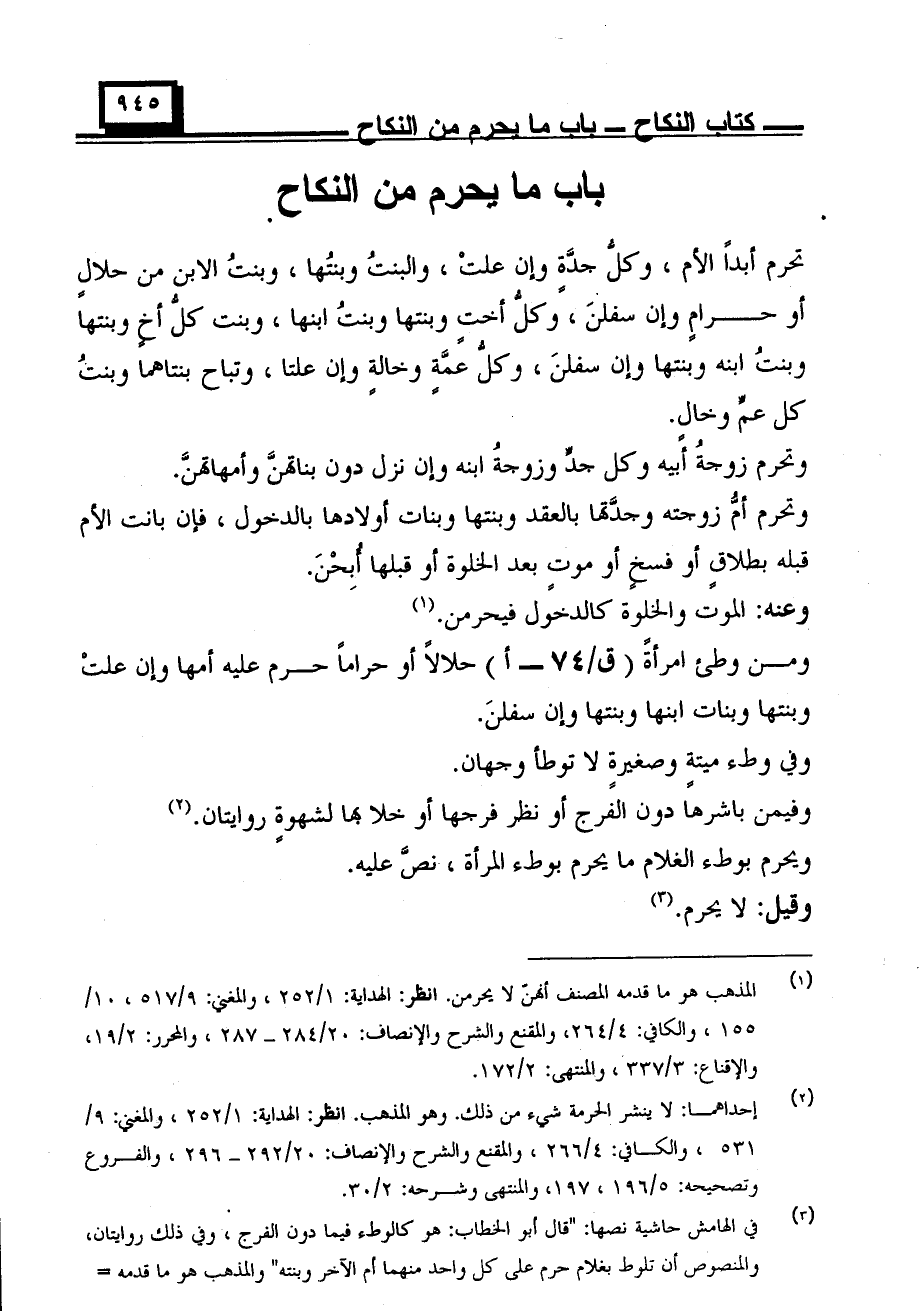 ٩٤٥
كتاب النكاح – باب ما يحرم من النكاح
باب ما يحرم من النكاح
تحرم أبداً الأم ، وكلُّ جدَّةٍ وإن علتْ ، والبنتُ وبنتُها ، وبنتُ الابن من حلالٍ
أو حــرامٍ وإن سفلنَ ، وكلُّ أختٍ وبنتها وبنتُ ابنها ، وبنت كلُّ أخٍ وبنتها
وبنتُ ابنه وبنتها وإن سفلنَ ، وكلُّ عمَّةٍ وخالةٍ وإن علتا ، وتباح بنتاهما وبنتُ
كل عمٍّ وخال.
وتحرم زوجةُ أبيه وكل جدٍّ وزوجةُ ابنه وإن نزل دون بناتهنَّ وأمهاتهنَّ.
وتحرم أمُّ زوجته وجدَّتها بالعقد وبنتها وبنات أولادها بالدخول ، فإن بانت الأم
قبله بطلاقٍ أو فسخٍ أو موتٍ بعد الخلوة أو قبلها أُبِحْنَ.
وعنه: الموت والخلوة كالدخول فيحرمن.(١)
ومــن وطئ امرأةً ( ق/٧٤ – أ ) حلالاً أو حراماً حــرم عليه أمها وإن علتْ
وبنتها وبنات ابنها وبنتها وإن سفلنَ.
وفي وطء ميتةٍ وصغيرةٍ لا توطأ وجهان.
وفيمن باشرها دون الفرج أو نظر فرجها أو خلا بها لشهوةٍ روايتان.(٢)
ويحرم بوطء الغلام ما يحرم بوطء المرأة ، نصَّ عليه.
وقيل: لا يحرم.(٣)
(١) المذهب هو ما قدمه المصنف أنهنّ لا يحرمن. انظر: الهداية: ٢٥٢/١ ، والمغني: ٥١٧/٩ ، ١٠/
١٥٥ ، والكافي: ٢٦٤/٤، والمقنع والشرح والإنصاف: ٢٨٤/٢٠ – ٢٨٧ ، والمحرر: ١٩/٢،
والإقناع: ٣٣٧/٣ ، والمنتهى: ١٧٢/٢.
(٢) إحداهمــا: لا ينشر الحرمة شيء من ذلك. وهو المذهب. انظر: الهداية: ٢٥٢/١ ، والمغني: ٩/
٥٣١ ، والكــافي: ٢٦٦/٤ ، والمقنع والشرح والإنصاف: ٢٩٢/٢٠ – ٢٩٦ ، والفــروع
وتصحيحه: ١٩٦/٥ ، ١٩٧، والمنتهى وشــرحه: ٣٠/٢.
(٣) في الهامش حاشية نصها: "قال أبو الخطاب: هو كالوطء فيما دون الفرج ، وفي ذلك روايتان،
والمنصوص أن تلوط بغلام حرم على كل واحد منهما أم الآخر وبنته" والمذهب هو ما قدمه =